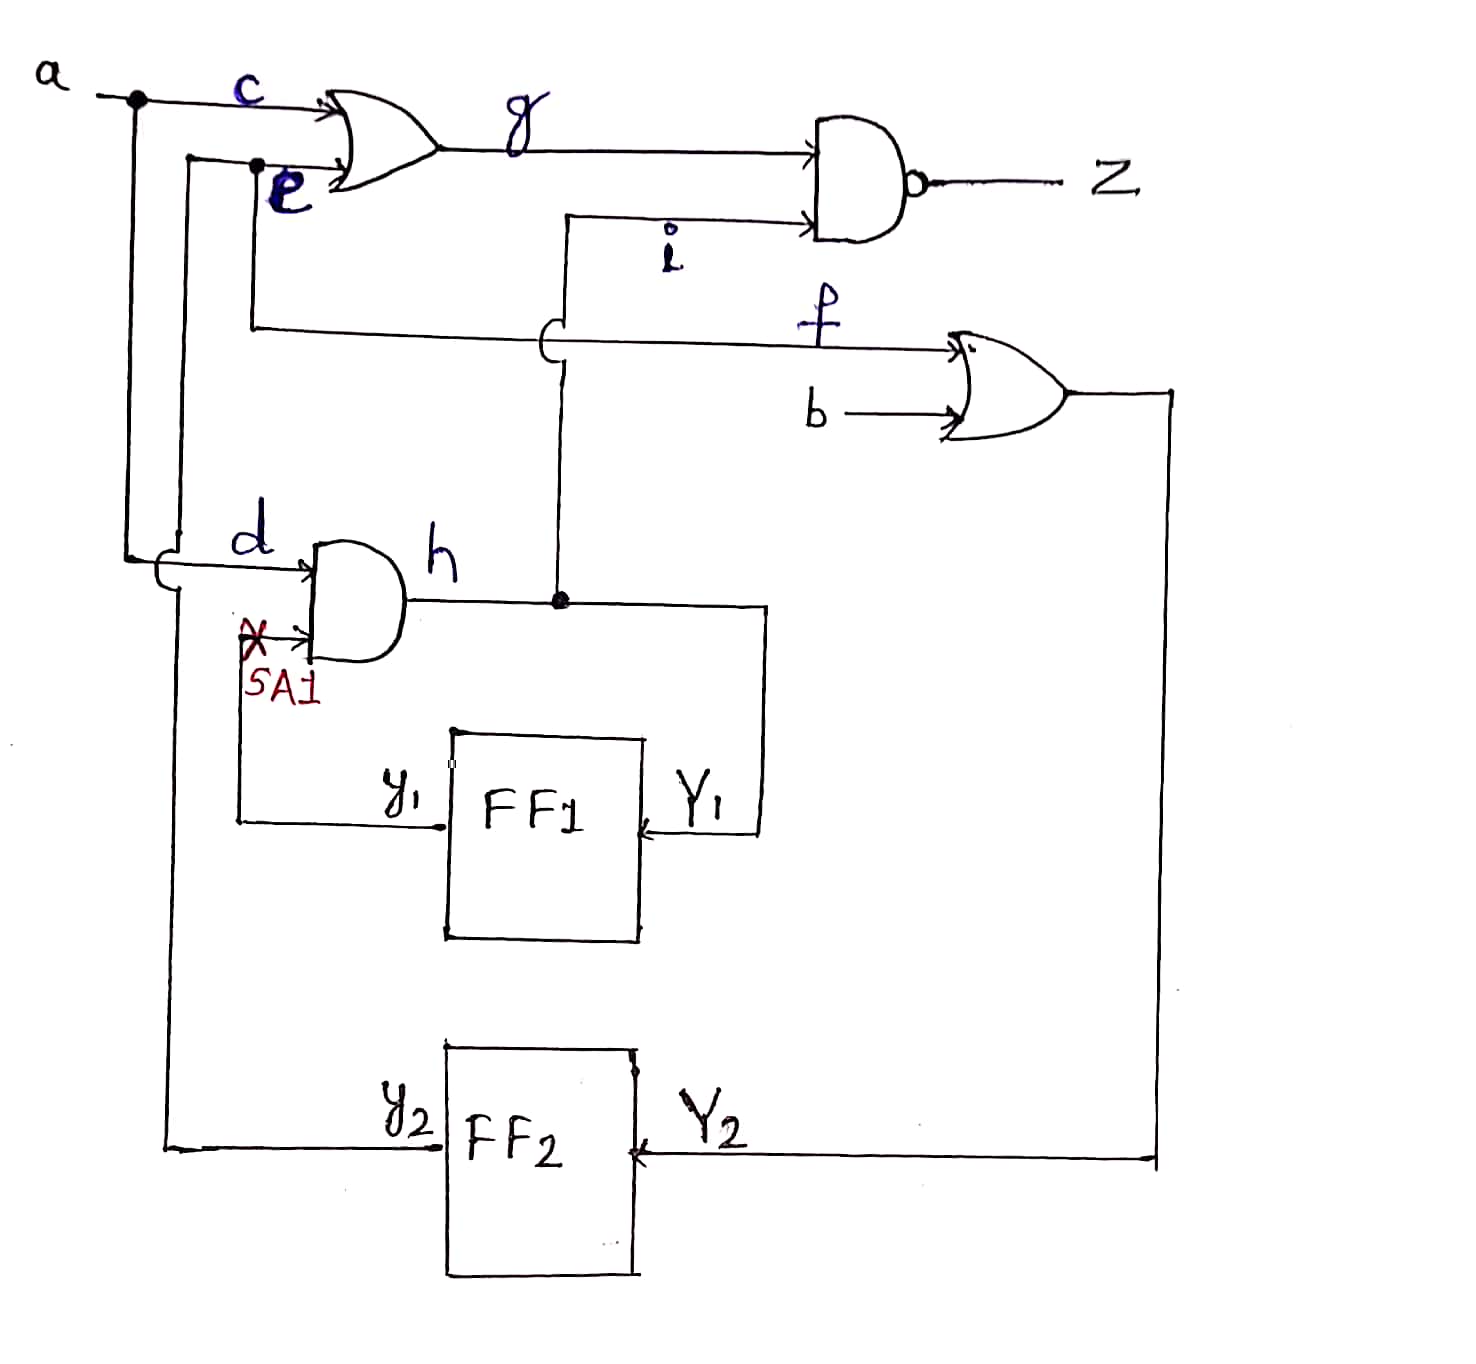 a
c
g
e
z
i
f
b
d
h
SA1
y₁
FF1
Y₁
y₂
FF2
Y₂